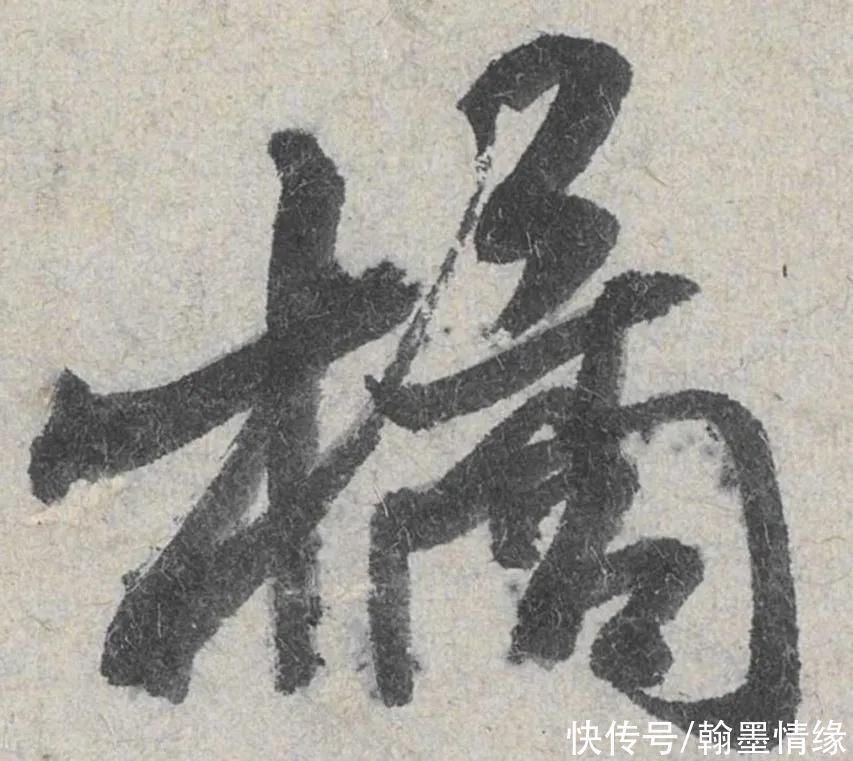 橘
快传号/翰墨情缘